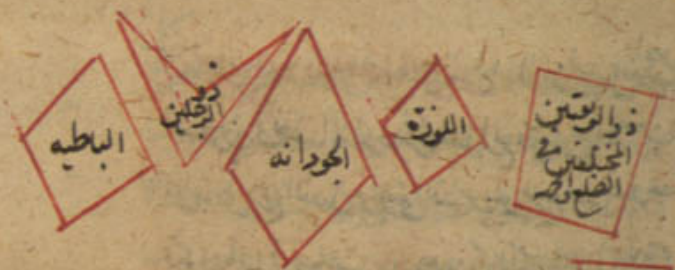 ذوالزنقتين
المختلفتين في
الضلع
اللوزة
الجودانه
ذو
الرجلين
الباطيه